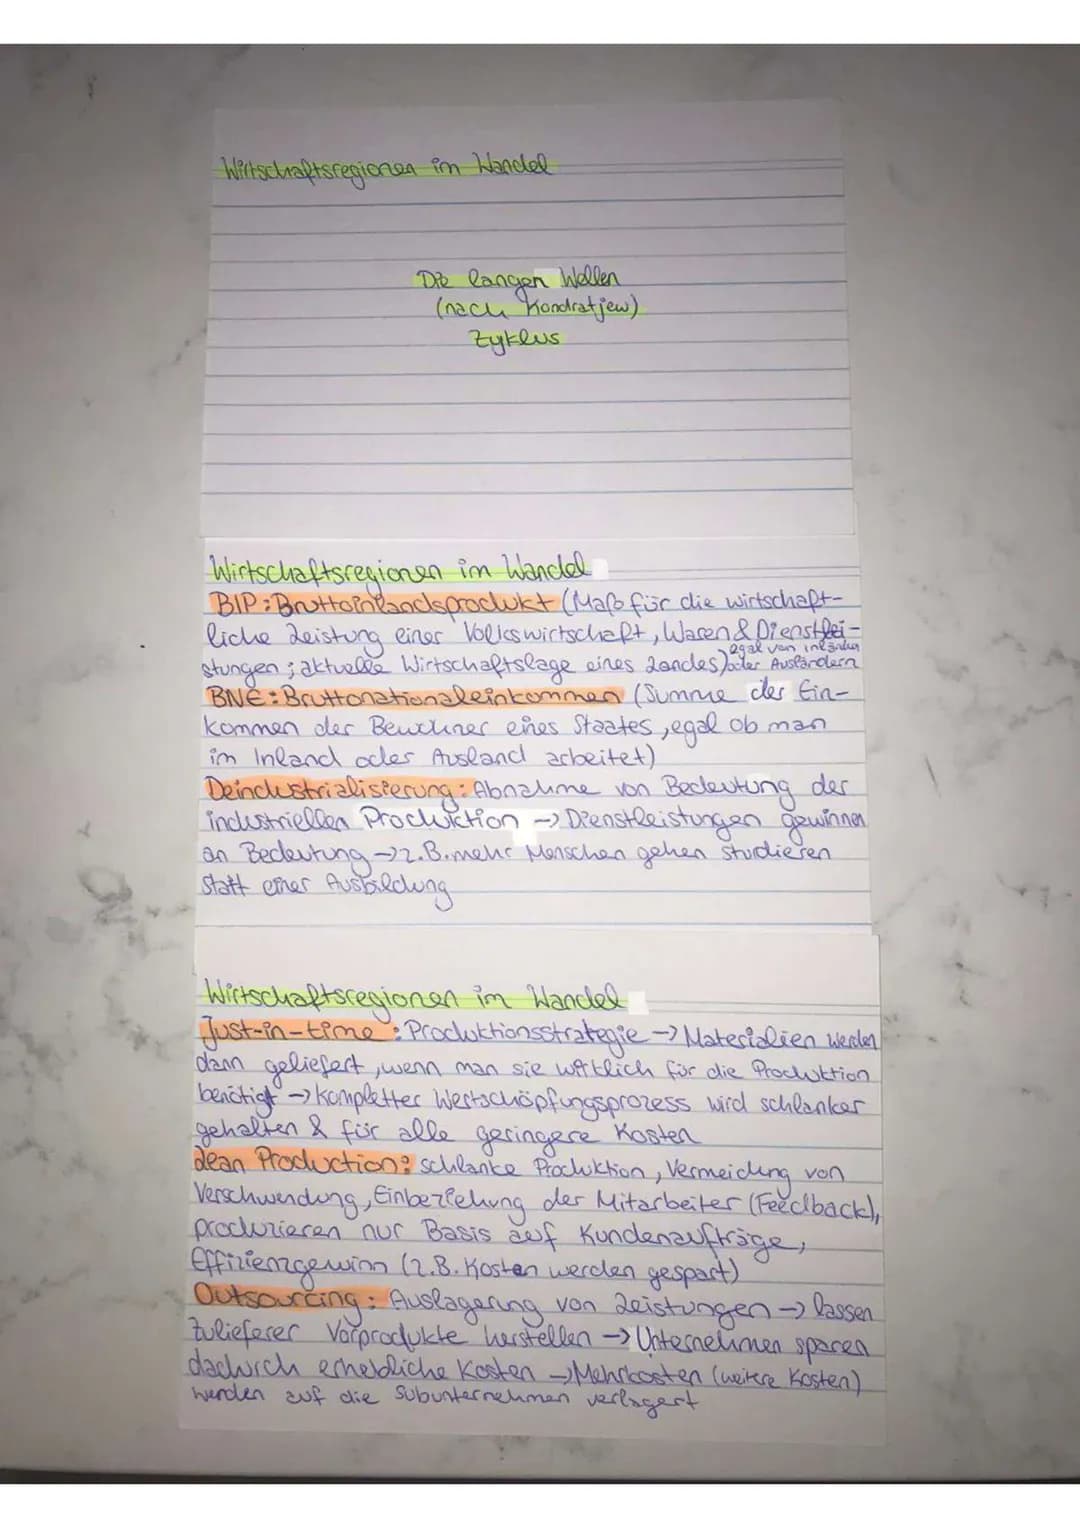 Wirtschaftsregionen im Wandel
Die langen Wellen
(nach Kondratjew)
Zyklus
Wirtschaftsregionen im Wandel
BIP: Bruttoinlandsprodukt (Maß für die wirtschaft-
liche Leistung einer Volkswirtschaft, Waren & Dienstlei-
egal von Inländern
stungen; aktuelle Wirtschaftslage eines Landes) oder Ausländern
BNE: Bruttonationaleinkommen (Summe der Ein-
kommen der Bewohner eines Staates, egal ob man
im Inland oder Ausland arbeitet)
Deindustrialisierung: Abnahme von Bedeutung der
industriellen Produktion → Dienstleistungen gewinnen
an Bedeutung → z.B. mehr Menschen gehen studieren
statt einer Ausbildung
Wirtschaftsregionen im Wandel
Just-in-time: Produktionsstrategie → Materialien werden
dann geliefert, wenn man sie wirklich für die Produktion
benötigt → kompletter Wertschöpfungsprozess wird schlanker
gehalten & für alle geringere Kosten
Lean Production: schlanke Produktion, Vermeidung von
Verschwendung, Einbeziehung der Mitarbeiter (Feedback),
produzieren nur Basis auf Kundenaufträge,
Effizienzgewinn (z.B. Kosten werden gespart)
Outsourcing: Auslagerung von Leistungen → lassen
Zulieferer Vorprodukte herstellen → Unternehmen sparen
dadurch erhebliche Kosten → Mehrkosten (weitere Kosten)
werden auf die Subunternehmen verlagert